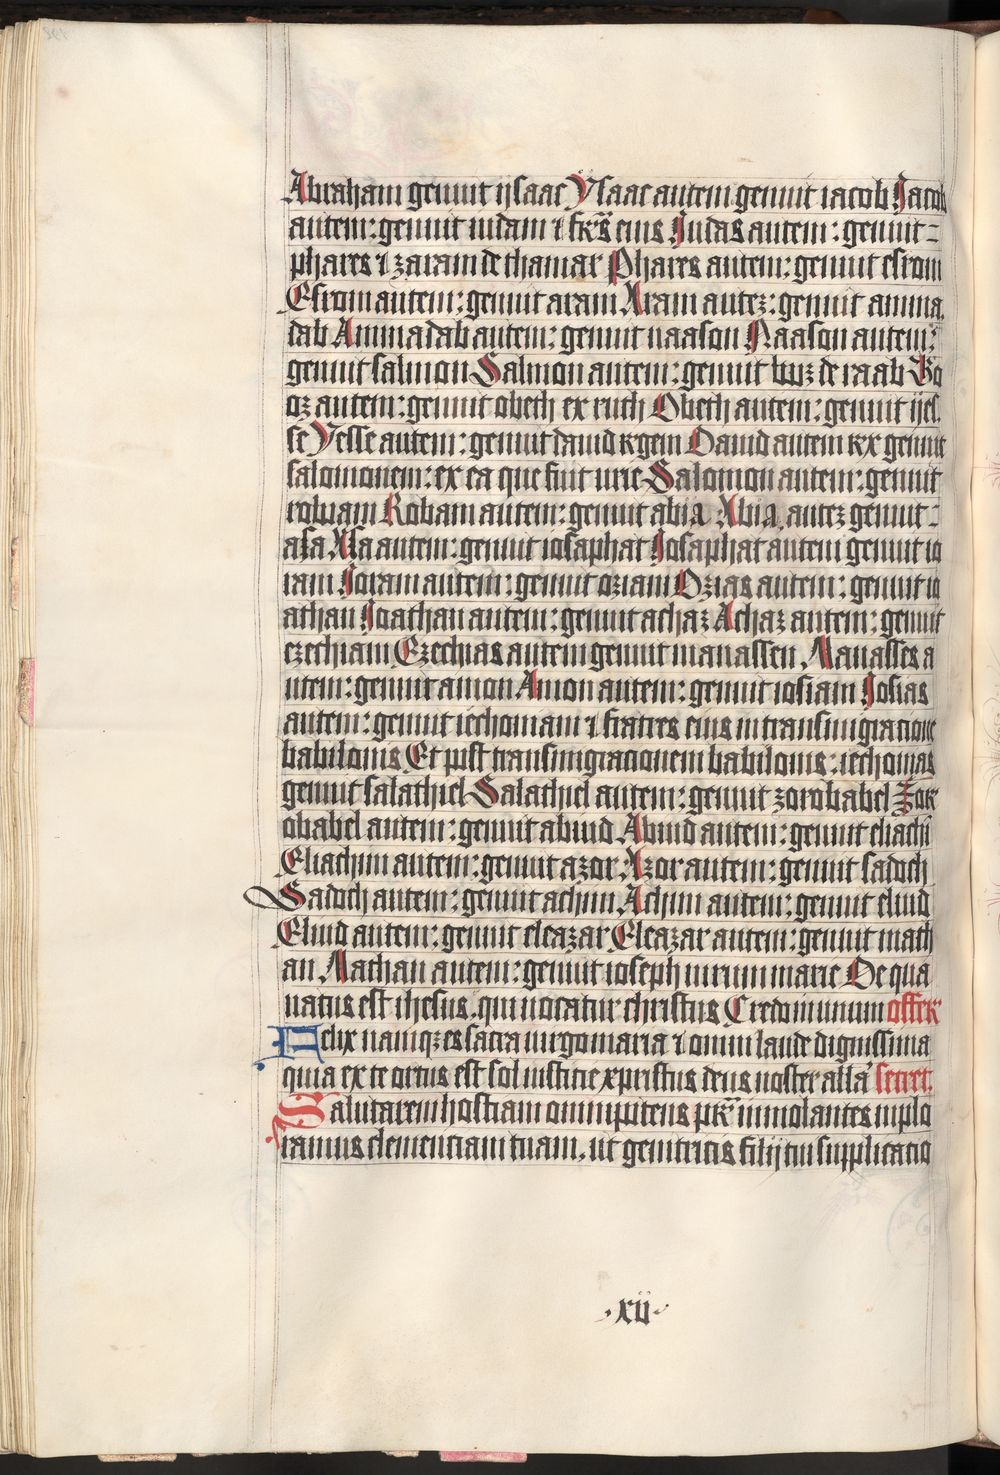 Abraham genuit ysaac Ysaac autem genuit iacob Jacob
autem: genuit iudam ⁊ frēs eius Judas autem: genuit=
phares ⁊ zaram de thamar Phares autem: genuit esrom
Esrom autem: genuit aram Aram autez: genuit amina
dab Aminadab autem: genuit naason Naason autem:
genuit salmon Salmon autem: genuit booz de raab Bo
oz autem: genuit obeth ex ruth Obeth autem: genuit yes
se Yesse autem: genuit dauid regem Dauid autem rex genuit
salomonem: ex ea que fuit urie Salomon autem: genuit
roboam Roboam autem: genuit abia Abia autez genuit=
asa Asa autem: genuit iosaphat Josaphat autem genuit io
ram Joram autem: genuit oziam Ozias autem: genuit io
athan Joathan autem: genuit achaz Achaz autem: genuit
ezechiam Ezechias autem genuit manassen Manasses a
utem: genuit amon Amon autem: genuit iosiam Josias
autem: genuit iechoniam ⁊ fratres eius in transmigracione
babilonis Et post transmigracionem babilonis: iechonias
genuit salathiel Salathiel autem: genuit zorobabel Zor
obabel autem: genuit abiud Abiud autem: genuit eliachi
Eliachim autem: genuit azor Azor autem: genuit sadoch
Sadoch autem: genuit achim Achim autem: genuit eliud
Eliud autem: genuit eleazar Eleazar autem: genuit math
an Mathan autem: genuit ioseph uirum marie De qua
natus est ihesus qui uocatur christus Credo in unum offer
Felix namqz es sacra uirgo maria ⁊ omni laude dignissima
quia ex te ortus est sol iusticie xpristus deus noster alla secret.
Salutarem hostiam omnipotens pr̄ immolantes inplo
ramus clementiam tuam. ut genitricis filij tui supplicatio
.xii.